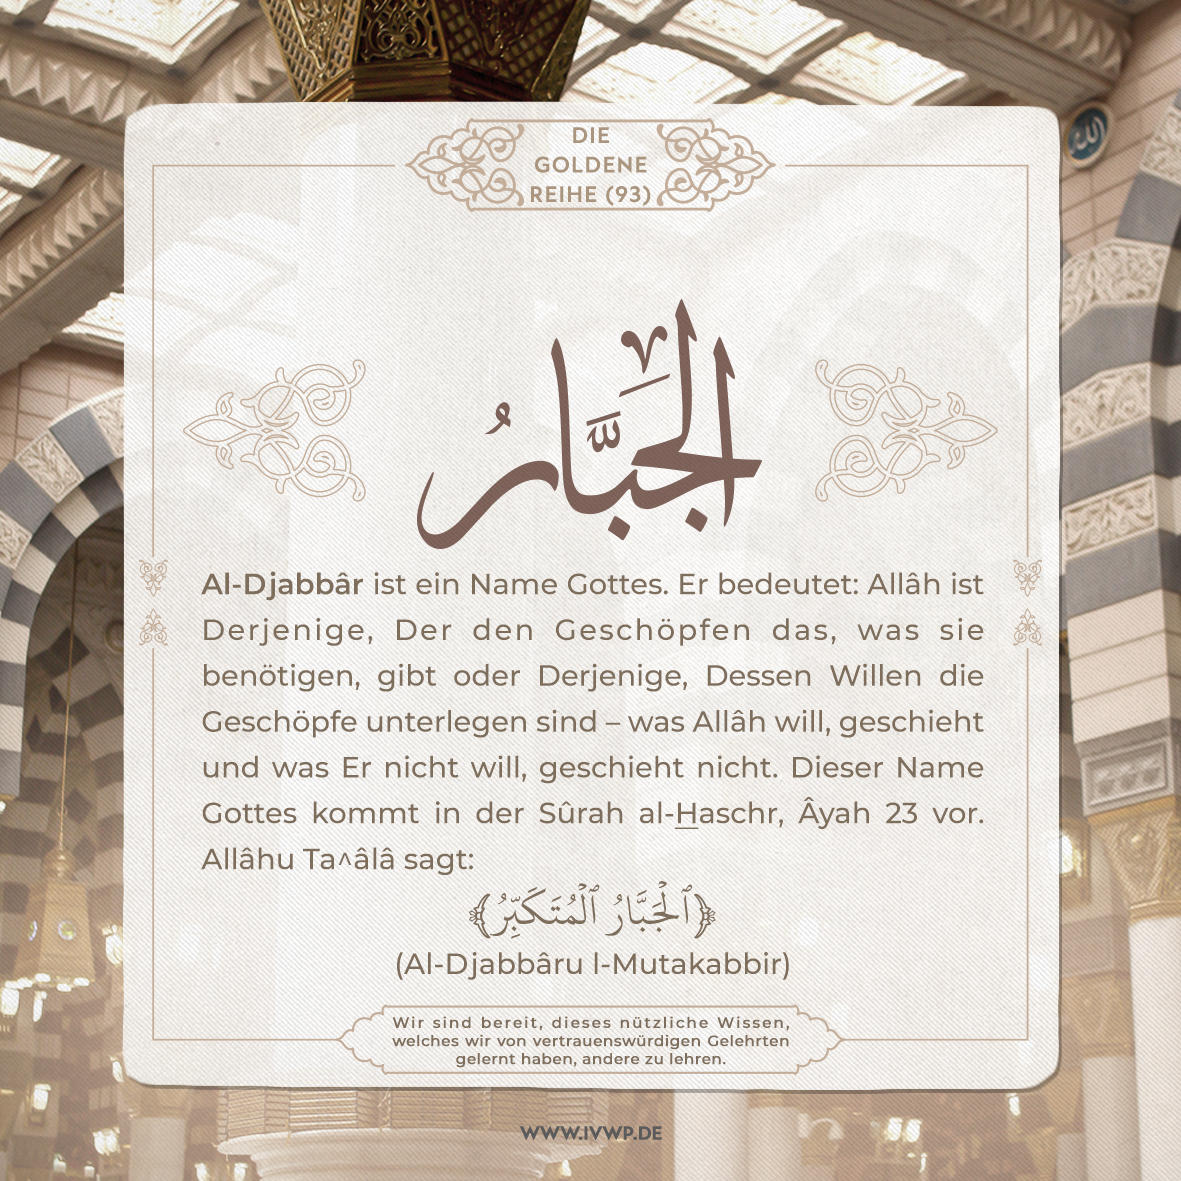 DIE
GOLDENE
REIHE (93)
الجَبَّارُ
Al-Djabbâr ist ein Name Gottes. Er bedeutet: Allâh ist
Derjenige, Der den Geschöpfen das, was sie
benötigen, gibt oder Derjenige, Dessen Willen die
Geschöpfe unterlegen sind – was Allâh will, geschieht
und was Er nicht will, geschieht nicht. Dieser Name
Gottes kommt in der Sûrah al-H̲aschr, Âyah 23 vor.
Allâhu Ta^âlâ sagt:
﴿ٱلْجَبَّارُ ٱلْمُتَكَبِّرُ﴾
(Al-Djabbâru l-Mutakabbir)
Wir sind bereit, dieses nützliche Wissen,
welches wir von vertrauenswürdigen Gelehrten
gelernt haben, andere zu lehren.
WWW.IVWP.DE
الله